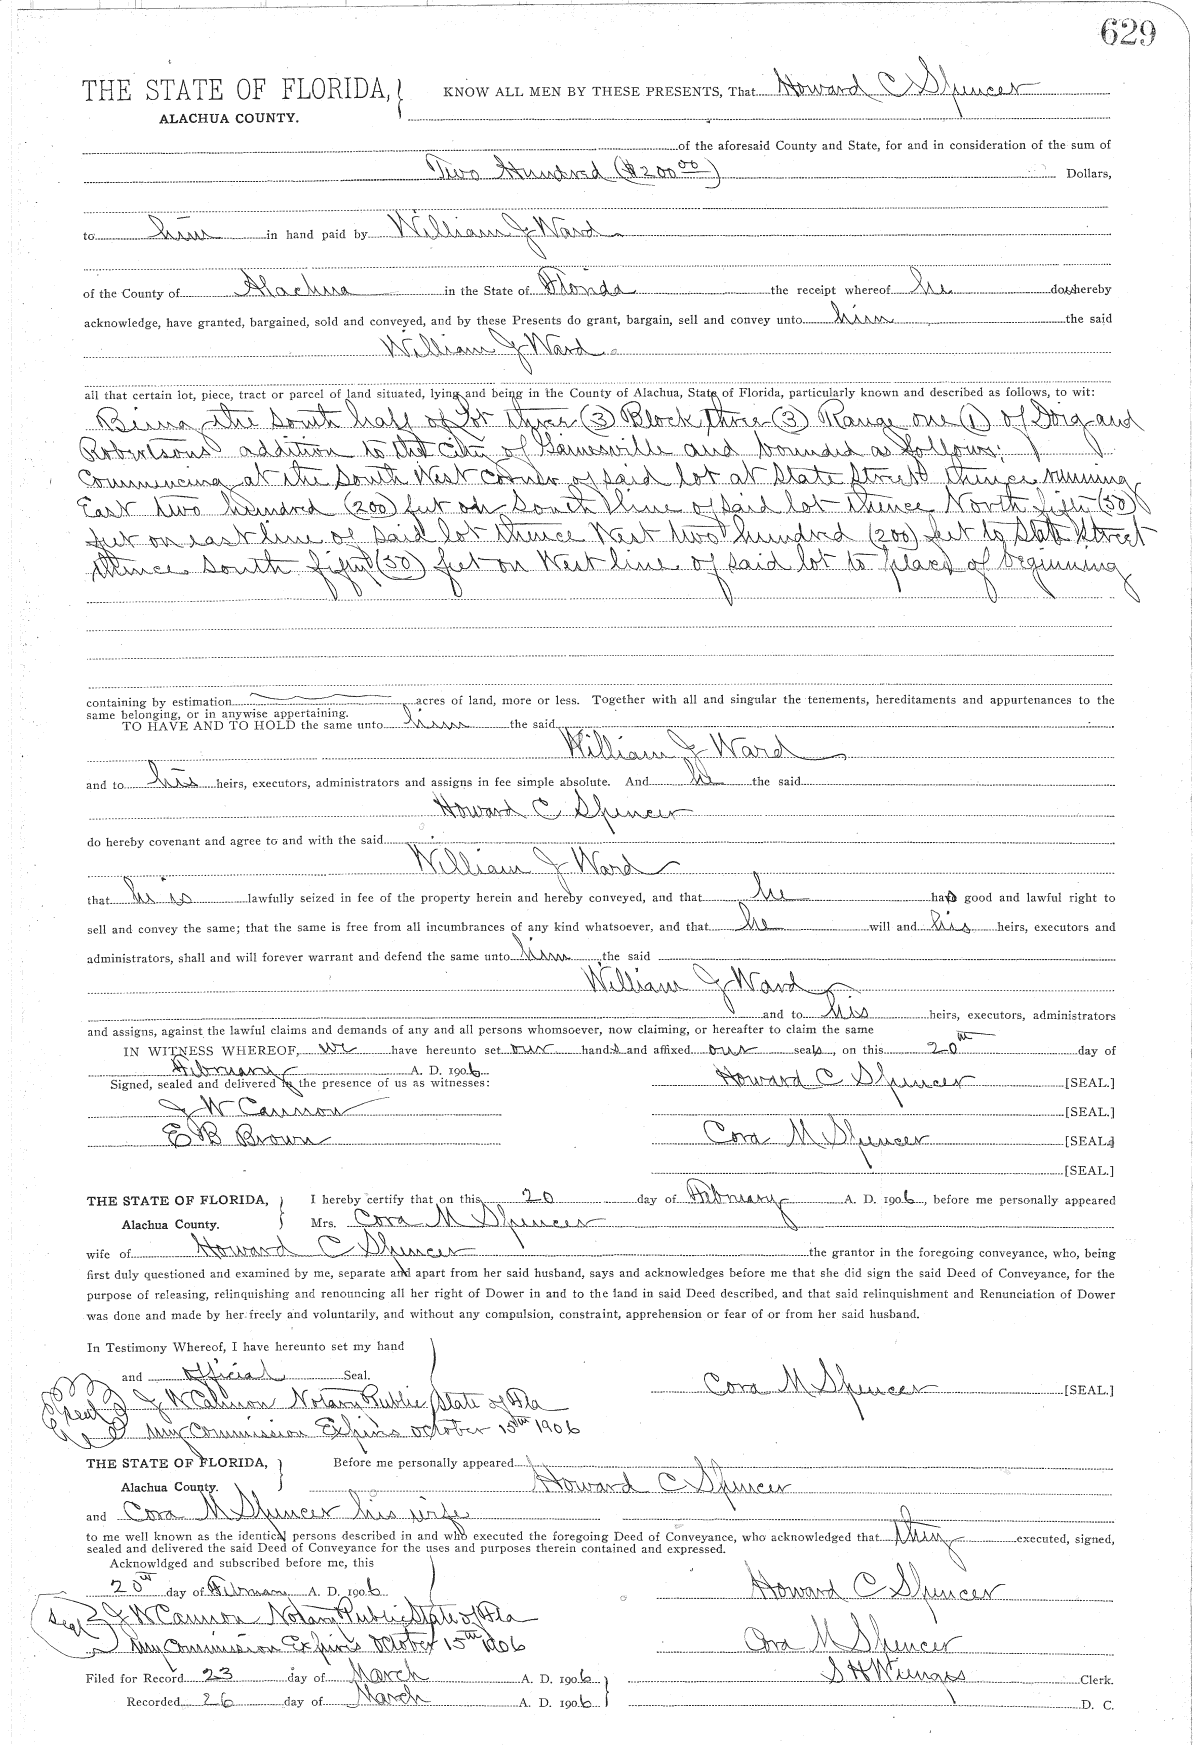 629
THE STATE OF FLORIDA, KNOW ALL MEN BY THESE PRESENTS, That Howard C Spencer
ALACHUA COUNTY.
of the aforesaid County and State, for and in consideration of the sum of
Two Hundred ($200.00) Dollars,
to him in hand paid by William J Ward
of the County of Alachua in the State of Florida the receipt whereof he does hereby
acknowledge, have granted, bargained, sold and conveyed, and by these Presents do grant, bargain, sell and convey unto him the said
William J Ward
all that certain lot, piece, tract or parcel of land situated, lying and being in the County of Alachua, State of Florida, particularly known and described as follows, to wit:
Being the South half of Lot three (3) Block three (3) Range one (1) of Doig and
Robertsons addition to the City of Gainesville and bounded as follows;
Commencing at the South West corner of said lot at State Street thence running
East two hundred (200) feet on South line of said lot thence North fifty (50)
feet on east line of said lot thence West two hundred (200) feet to State Street
thence South fifty (50) feet on West line of said lot to place of beginning
containing by estimation acres of land, more or less. Together with all and singular the tenements, hereditaments and appurtenances to the
same belonging, or in anywise appertaining.
TO HAVE AND TO HOLD the same unto him the said
William J Ward
and to his heirs, executors, administrators and assigns in fee simple absolute. And he the said
Howard C Spencer
do hereby covenant and agree to and with the said
William J Ward
that he is lawfully seized in fee of the property herein and hereby conveyed, and that he has good and lawful right to
sell and convey the same; that the same is free from all incumbrances of any kind whatsoever, and that he will and his heirs, executors and
administrators, shall and will forever warrant and defend the same unto him the said
William J Ward
and to his heirs, executors, administrators
and assigns, against the lawful claims and demands of any and all persons whomsoever, now claiming, or hereafter to claim the same
IN WITNESS WHEREOF, we have hereunto set our hands and affixed our seals, on this 20th day of
February A. D. 1906
Signed, sealed and delivered in the presence of us as witnesses: Howard C Spencer [SEAL.]
J W Cannon [SEAL.]
E B Brown Cora M Spencer [SEAL.]
[SEAL.]
THE STATE OF FLORIDA, I hereby certify that on this 20 day of February A. D. 1906, before me personally appeared
Alachua County. Mrs. Cora M Spencer
wife of Howard C Spencer the grantor in the foregoing conveyance, who, being
first duly questioned and examined by me, separate and apart from her said husband, says and acknowledges before me that she did sign the said Deed of Conveyance, for the
purpose of releasing, relinquishing and renouncing all her right of Dower in and to the land in said Deed described, and that said relinquishment and Renunciation of Dower
was done and made by her freely and voluntarily, and without any compulsion, constraint, apprehension or fear of or from her said husband.
In Testimony Whereof, I have hereunto set my hand
and official Seal.
Cora M Spencer [SEAL.]
Seal J W Cannon Notary Public State of Fla
My Commission Expires October 15th 1906
THE STATE OF FLORIDA, Before me personally appeared
Alachua County. Howard C Spencer
and Cora M Spencer his wife
to me well known as the identical persons described in and who executed the foregoing Deed of Conveyance, who acknowledged that they executed, signed,
sealed and delivered the said Deed of Conveyance for the uses and purposes therein contained and expressed.
Acknowldged and subscribed before me, this
20th day of February A. D. 1906 Howard C Spencer
Seal J W Cannon Notary Public State of Fla
My Commission Expires October 15th 1906 Cora M Spencer
Filed for Record 23 day of March A. D. 1906 S H Wienges Clerk.
Recorded 26 day of March A. D. 1906 D. C.